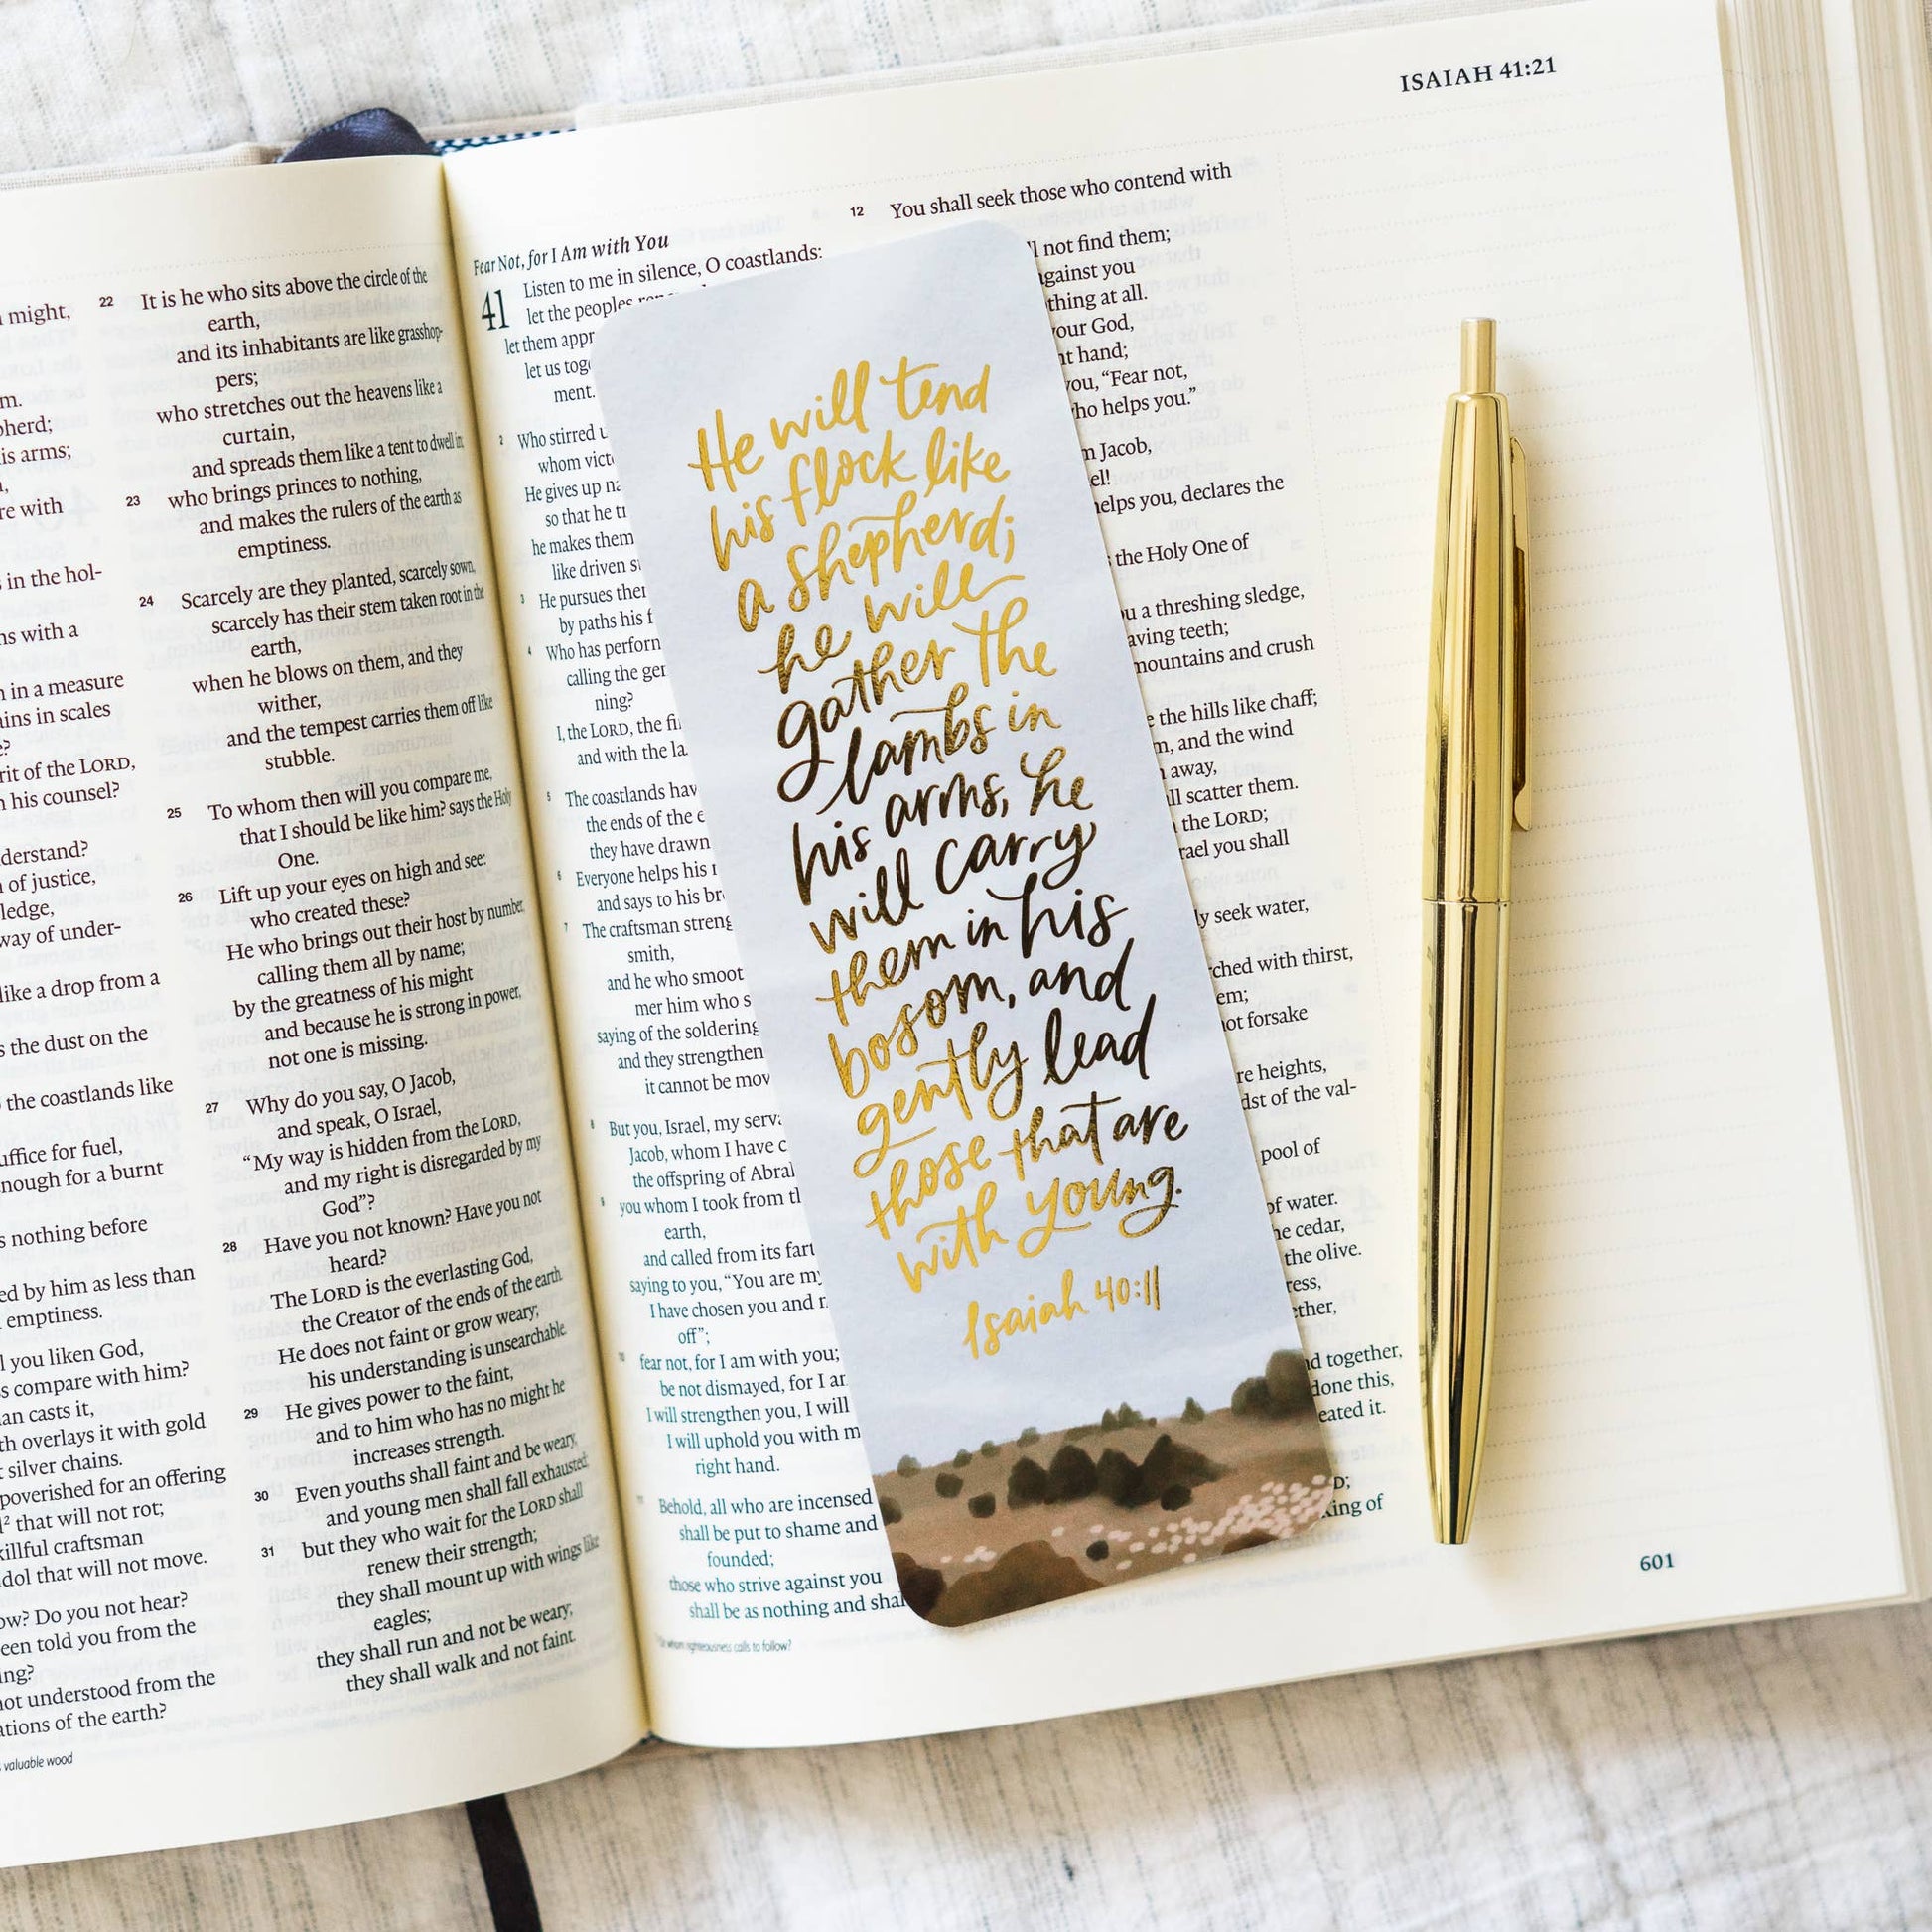 might,
m.
herd;
is arms;
re with
in the hol-
ns with a
in a measure
ains in scales
rit of the LORD,
his counsel?
derstand?
of justice,
ledge,
way of under-
like a drop from a
s the dust on the
the coastlands like
uffice for fuel,
nough for a burnt
s nothing before
ed by him as less than
emptiness.
l you liken God,
s compare with him?
an casts it,
th overlays it with gold
silver chains.
poverished for an offering
² that will not rot;
killful craftsman
idol that will not move.
ow? Do you not hear?
een told you from the
ing?
not understood from the
ations of the earth?
valuable wood
22 It is he who sits above the circle of the
earth,
and its inhabitants are like grasshop-
pers;
who stretches out the heavens like a
curtain,
and spreads them like a tent to dwell in;
23 who brings princes to nothing,
and makes the rulers of the earth as
emptiness.
24 Scarcely are they planted, scarcely sown,
scarcely has their stem taken root in the
earth,
when he blows on them, and they
wither,
and the tempest carries them off like
stubble.
25 To whom then will you compare me,
that I should be like him? says the Holy
One.
26 Lift up your eyes on high and see:
who created these?
He who brings out their host by number,
calling them all by name;
by the greatness of his might
and because he is strong in power,
not one is missing.
27 Why do you say, O Jacob,
and speak, O Israel,
“My way is hidden from the LORD,
and my right is disregarded by my
God”?
28 Have you not known? Have you not
heard?
The LORD is the everlasting God,
the Creator of the ends of the earth.
He does not faint or grow weary;
his understanding is unsearchable.
29 He gives power to the faint,
and to him who has no might he
increases strength.
30 Even youths shall faint and be weary,
and young men shall fall exhausted;
31 but they who wait for the LORD shall
renew their strength;
they shall mount up with wings like
eagles;
they shall run and not be weary;
they shall walk and not faint.
ISAIAH 41:21
Fear Not, for I Am with You
41 Listen to me in silence, O coastlands;
let the peoples
let them appr
let us tog
ment.
2 Who stirred u
whom vict
He gives up na
so that he tr
he makes them
like driven s
3 He pursues ther
by paths his f
4 Who has perform
calling the ger
ning?
I, the LORD, the fi
and with the la
5 The coastlands hav
the ends of the e
they have drawn
6 Everyone helps his
and says to his br
7 The craftsman streng
smith,
and he who smoot
mer him who s
saying of the soldering
and they strengthen
it cannot be mov
8 But you, Israel, my serv
Jacob, whom I have c
the offspring of Abra
9 you whom I took from t
earth,
and called from its fart
saying to you, “You are my
I have chosen you and
off”;
10 fear not, for I am with you;
be not dismayed, for I a
I will strengthen you, I will
I will uphold you with m
right hand.
11 Behold, all who are incensed
shall be put to shame and
founded;
those who strive against you
shall be as nothing and shal
whom righteousness calls to follow?
He will tend
his flock like
a shepherd;
he will
gather the
lambs in
his arms, he
will carry
them in his
bosom, and
gently lead
those that are
with young.
Isaiah 40:11
12 You shall seek those who contend with
ll not find them;
gainst you
thing at all.
your God,
t hand;
ou, “Fear not,
ho helps you.”
m Jacob,
el!
helps you, declares the
the Holy One of
u a threshing sledge,
aving teeth;
mountains and crush
e the hills like chaff;
m, and the wind
away,
ll scatter them.
the LORD;
rael you shall
ly seek water,
rched with thirst,
em;
not forsake
re heights,
dst of the val-
pool of
of water.
he cedar,
the olive.
ress,
ether,
nd together,
done this,
eated it.
D;
King of
601